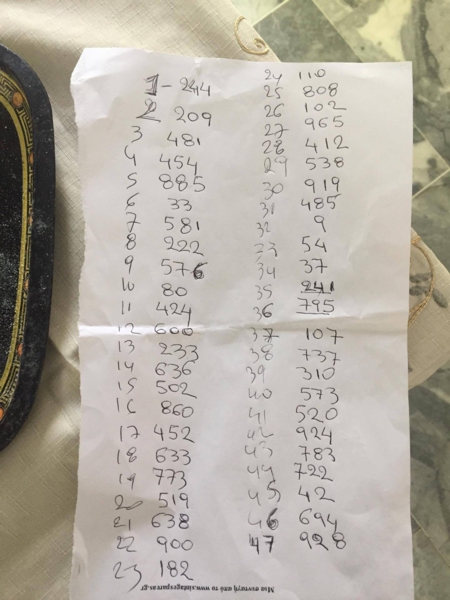 1 - 244
2 209
3 481
4 454
5 885
6 33
7 581
8 222
9 576
10 80
11 424
12 600
13 233
14 636
15 502
16 860
17 452
18 633
19 773
20 519
21 638
22 900
23 182
24 110
25 808
26 102
27 965
28 412
29 538
30 919
31 485
32 9
33 54
34 37
35 241
36 795
37 107
38 737
39 310
40 573
41 520
42 924
43 783
44 722
45 42
46 694
47 928
Μια συνταγή από το www.sintagespareas.gr